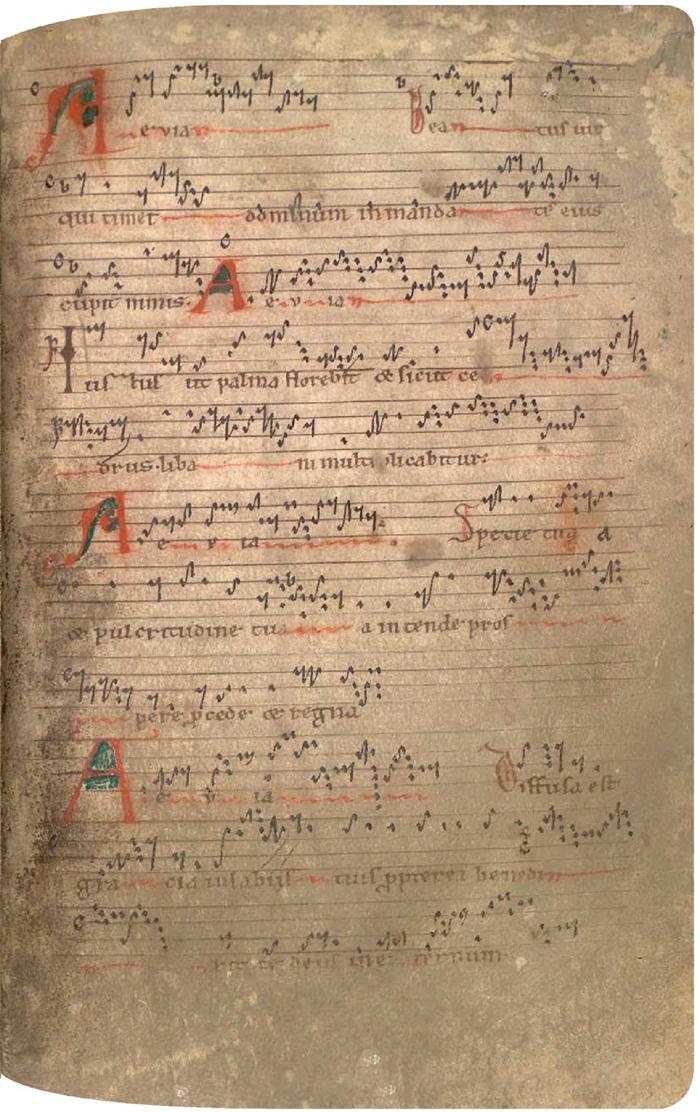 A evia Beatus uir
qui timet dominum in manda tis eius
cupit nimis. A e v ia
Ius tus ut palma florebit & sicut ce
drus liba ni multiplicabitur:
A e v ia Specie tua
& pulcritudine tu a intende pros
pere pcede & regna
A e v ia Diffusa est
gra cia in labiis tuis ppterea benedi
xit te deus in e ternum